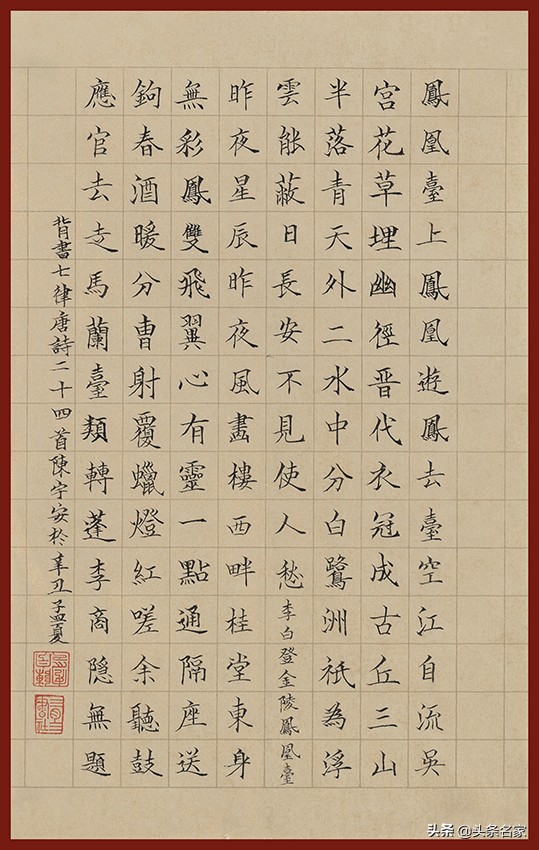 鳳凰臺上鳳凰遊鳳去臺空江自流吳
宮花草埋幽徑晋代衣冠成古丘三山
半落青天外二水中分白鷺洲祇為浮
雲能蔽日長安不見使人愁李白登金陵鳳凰臺
昨夜星辰昨夜風畫樓西畔桂堂東身
無彩鳳雙飛翼心有靈一點通隔座送
鉤春酒暖分曹射覆蠟燈紅嗟余聽鼓
應官去走馬蘭臺類轉蓬李商隐無題
背書七律唐詩二十四首陳宇安於辛丑孟夏
头条 @头条名家